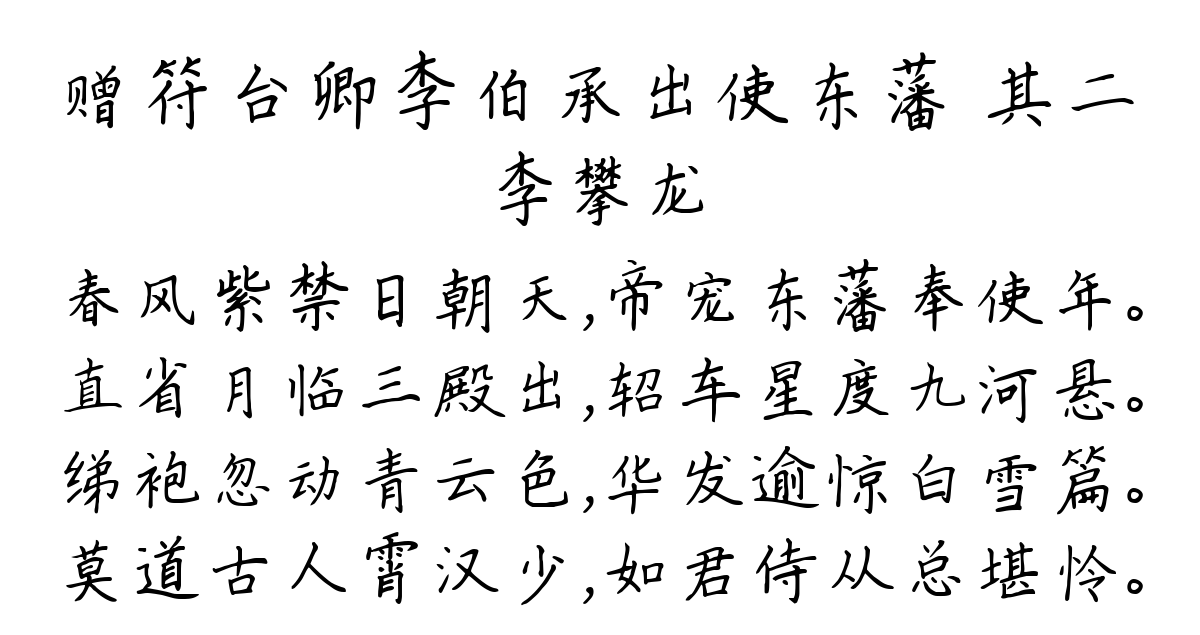 赠符台卿李伯承出使东藩 其二
李攀龙
春风紫禁日朝天,帝宠东藩奉使年。
直省月临三殿出,轺车星度九河悬。
绨袍忽动青云色,华发逾惊白雪篇。
莫道古人霄汉少,如君侍从总堪怜。